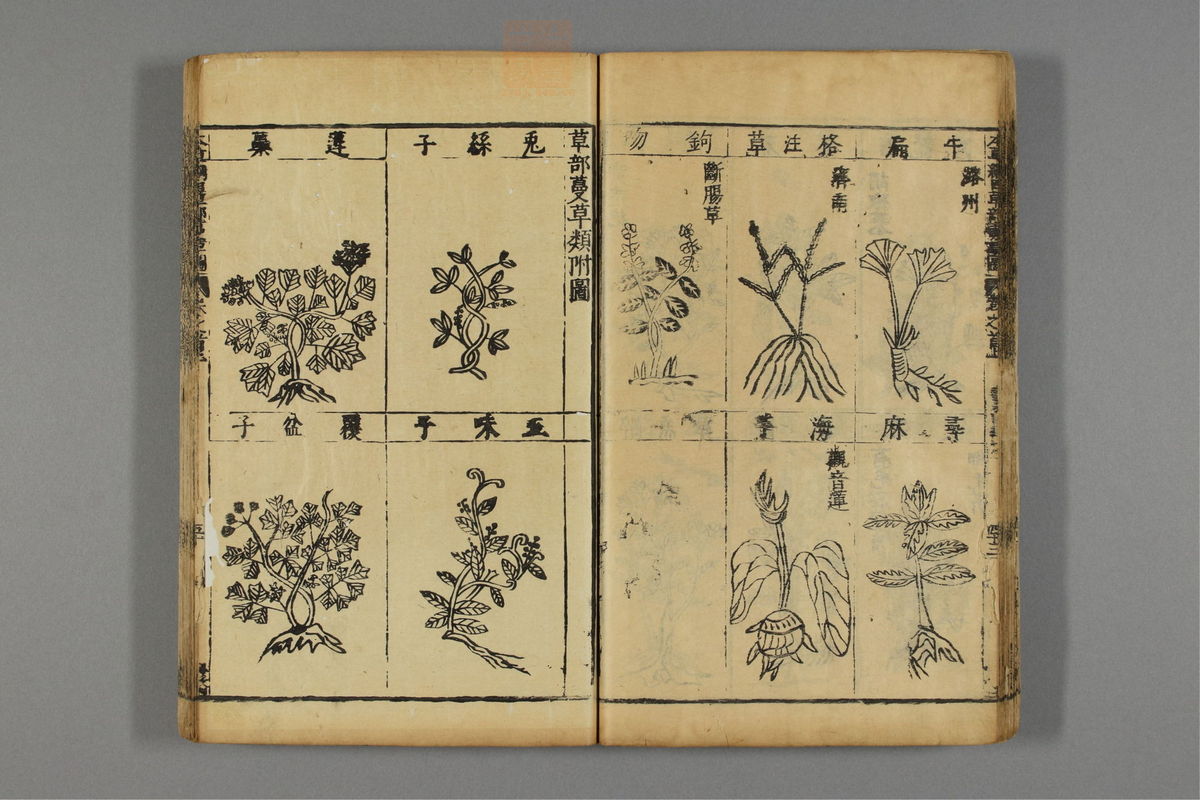 牛扁
潞州
格注草
濟南
鉤吻
斷腸草
蕁麻
海芋
觀音蓮
草部蔓草類附圖
兎絲子
蓬虆
五味子
覆盆子